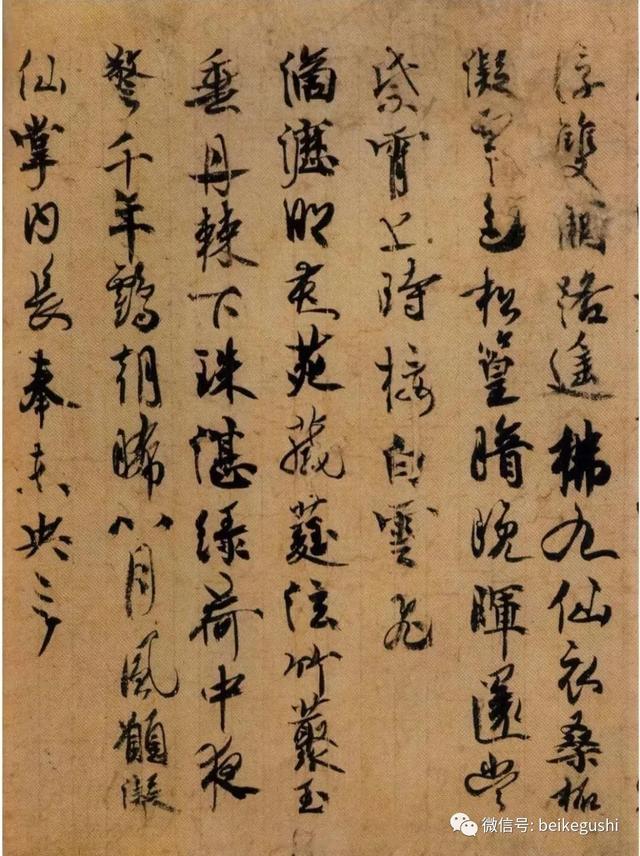 浮雙闕路遥拂九仙衣桑柘
凝寒色松篁暗晚暉還當
紫霄上時接白雲飛
滴瀝明花苑葳蕤泫竹叢玉
垂丹棘下珠湛緑荷中夜
警千年鶴朝晞八月風願凝
仙掌内長奉未央宫
微信号: beikegushi